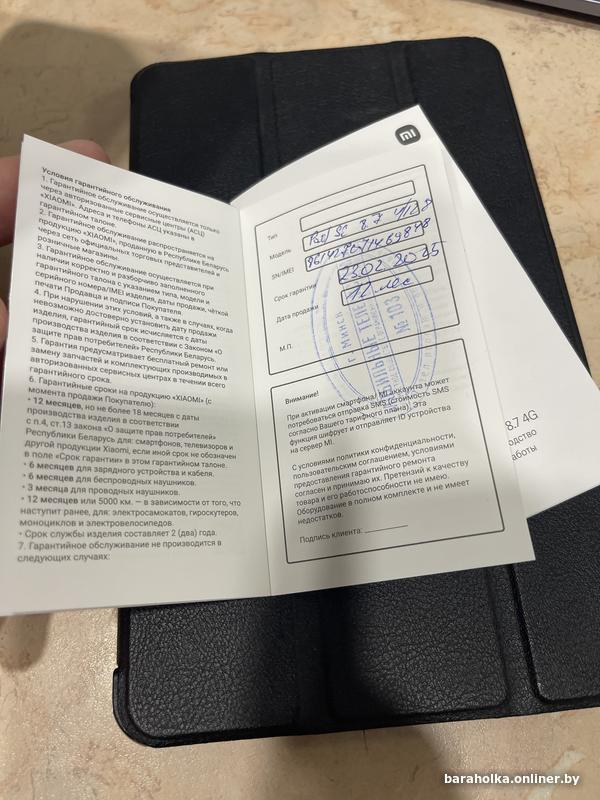 Условия гарантийного обслуживания
1. Гарантийное обслуживание осуществляется только
через авторизованные сервисные центры (АСЦ)
«XIAOMI». Адреса и телефоны АСЦ указаны в
гарантийном талоне.
2. Гарантийное обслуживание распространяется на
продукцию «XIAOMI», проданную в Республике Беларусь
через сеть официальных торговых представителей и
розничные магазины.
3. Гарантийное обслуживание осуществляется при
наличии корректно и разборчиво заполненного
гарантийного талона с указанием типа, модели и
серийного номера/IMEI изделия, даты продажи, чёткой
печати Продавца и подписи Покупателя.
4. При нарушении этих условий, а также в случаях, когда
невозможно достоверно установить дату продажи
изделия, гарантийный срок исчисляется с даты
производства изделия в соответствии с Законом «О
защите прав потребителей» Республики Беларусь.
5. Гарантия предусматривает бесплатный ремонт или
замену запчастей и комплектующих произведимых в
авторизованных сервисных центрах в течении всего
гарантийного срока.
6. Гарантийные сроки на продукцию «XIAOMI» (с
момента продажи Покупателю):
• 12 месяцев, но не более 18 месяцев с даты
производства изделия в соответствии
с п.4, ст.13 закона «О защите прав потребителей»
Республики Беларусь для: смартфонов, телевизоров и
другой продукции Xiaomi, если иной срок не обозначен
в поле «Срок гарантии» в этом гарантийном талоне.
• 6 месяцев для зарядного устройства и кабеля.
• 6 месяцев для беспроводных наушников.
• 3 месяца для проводных наушников.
• 12 месяцев или 5000 км. — в зависимости от того, что
наступит ранее, для: электросамокатов, гироскутеров,
моноциклов и электровелосипедов.
• Срок службы изделия составляет 2 (два) года.
7. Гарантийное обслуживание не производится в
следующих случаях:
mi
Тип
Модель SE 8.7 4/128
SN/IMEI
Срок гарантии 23.02.2025
Дата продажи 12 мес
М.П.
г. МИНСК
№ 103
Внимание!
При активации смартфона, MI аккаунта может
потребоваться отправка SMS (стоимость SMS
согласно Вашего тарифного плана). Эта
функция шифрует и отправляет ID устройства
на сервер MI.
С условиями политики конфиденциальности,
пользовательским соглашением, условиями
предоставления гарантийного ремонта
согласен и принимаю их. Претензий к качеству
товара и его работоспособности не имею.
Оборудование в полном комплекте и не имеет
недостатков.
Подпись клиента:
8.7 4G
одство
аботы
baraholka.onliner.by